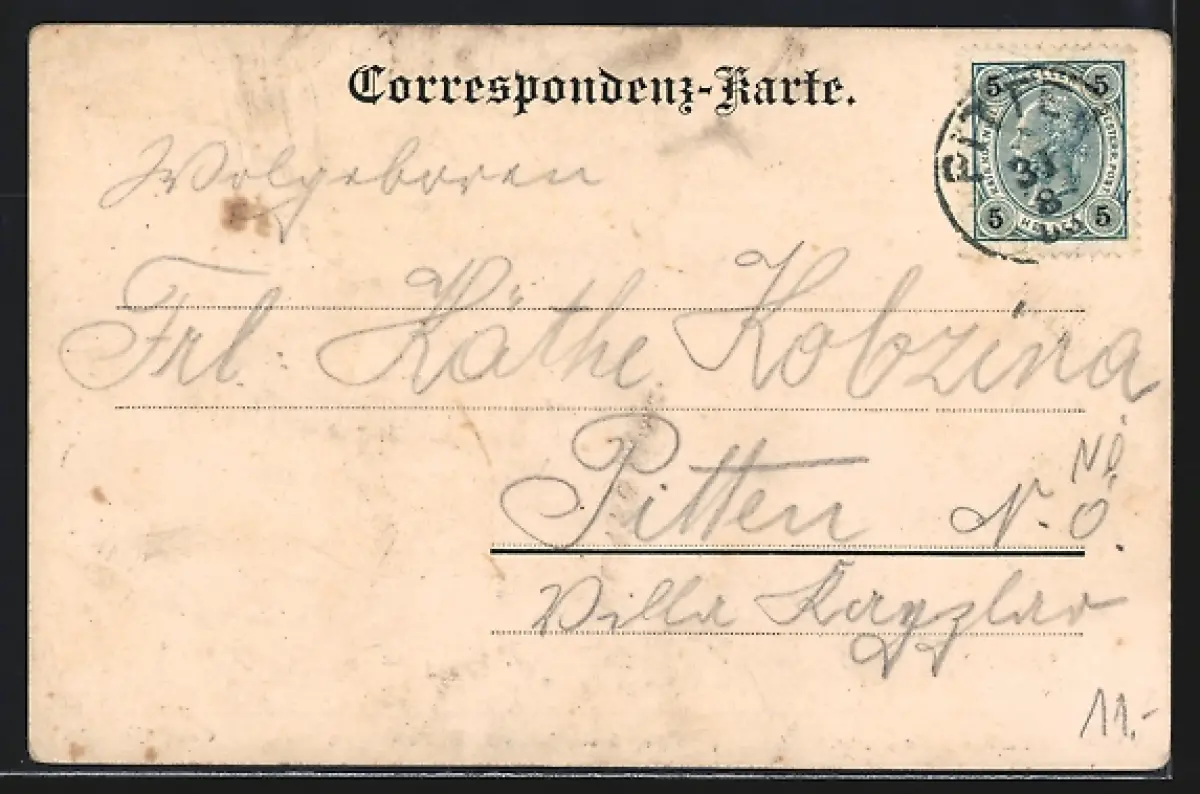 Correspondenz-Karte.
5 5
5 5
PITTEN
31
8
Wolgeboren
Frl. Käthe Kobzina
Pitten N.Ö.
NÖ
Villa
11.-